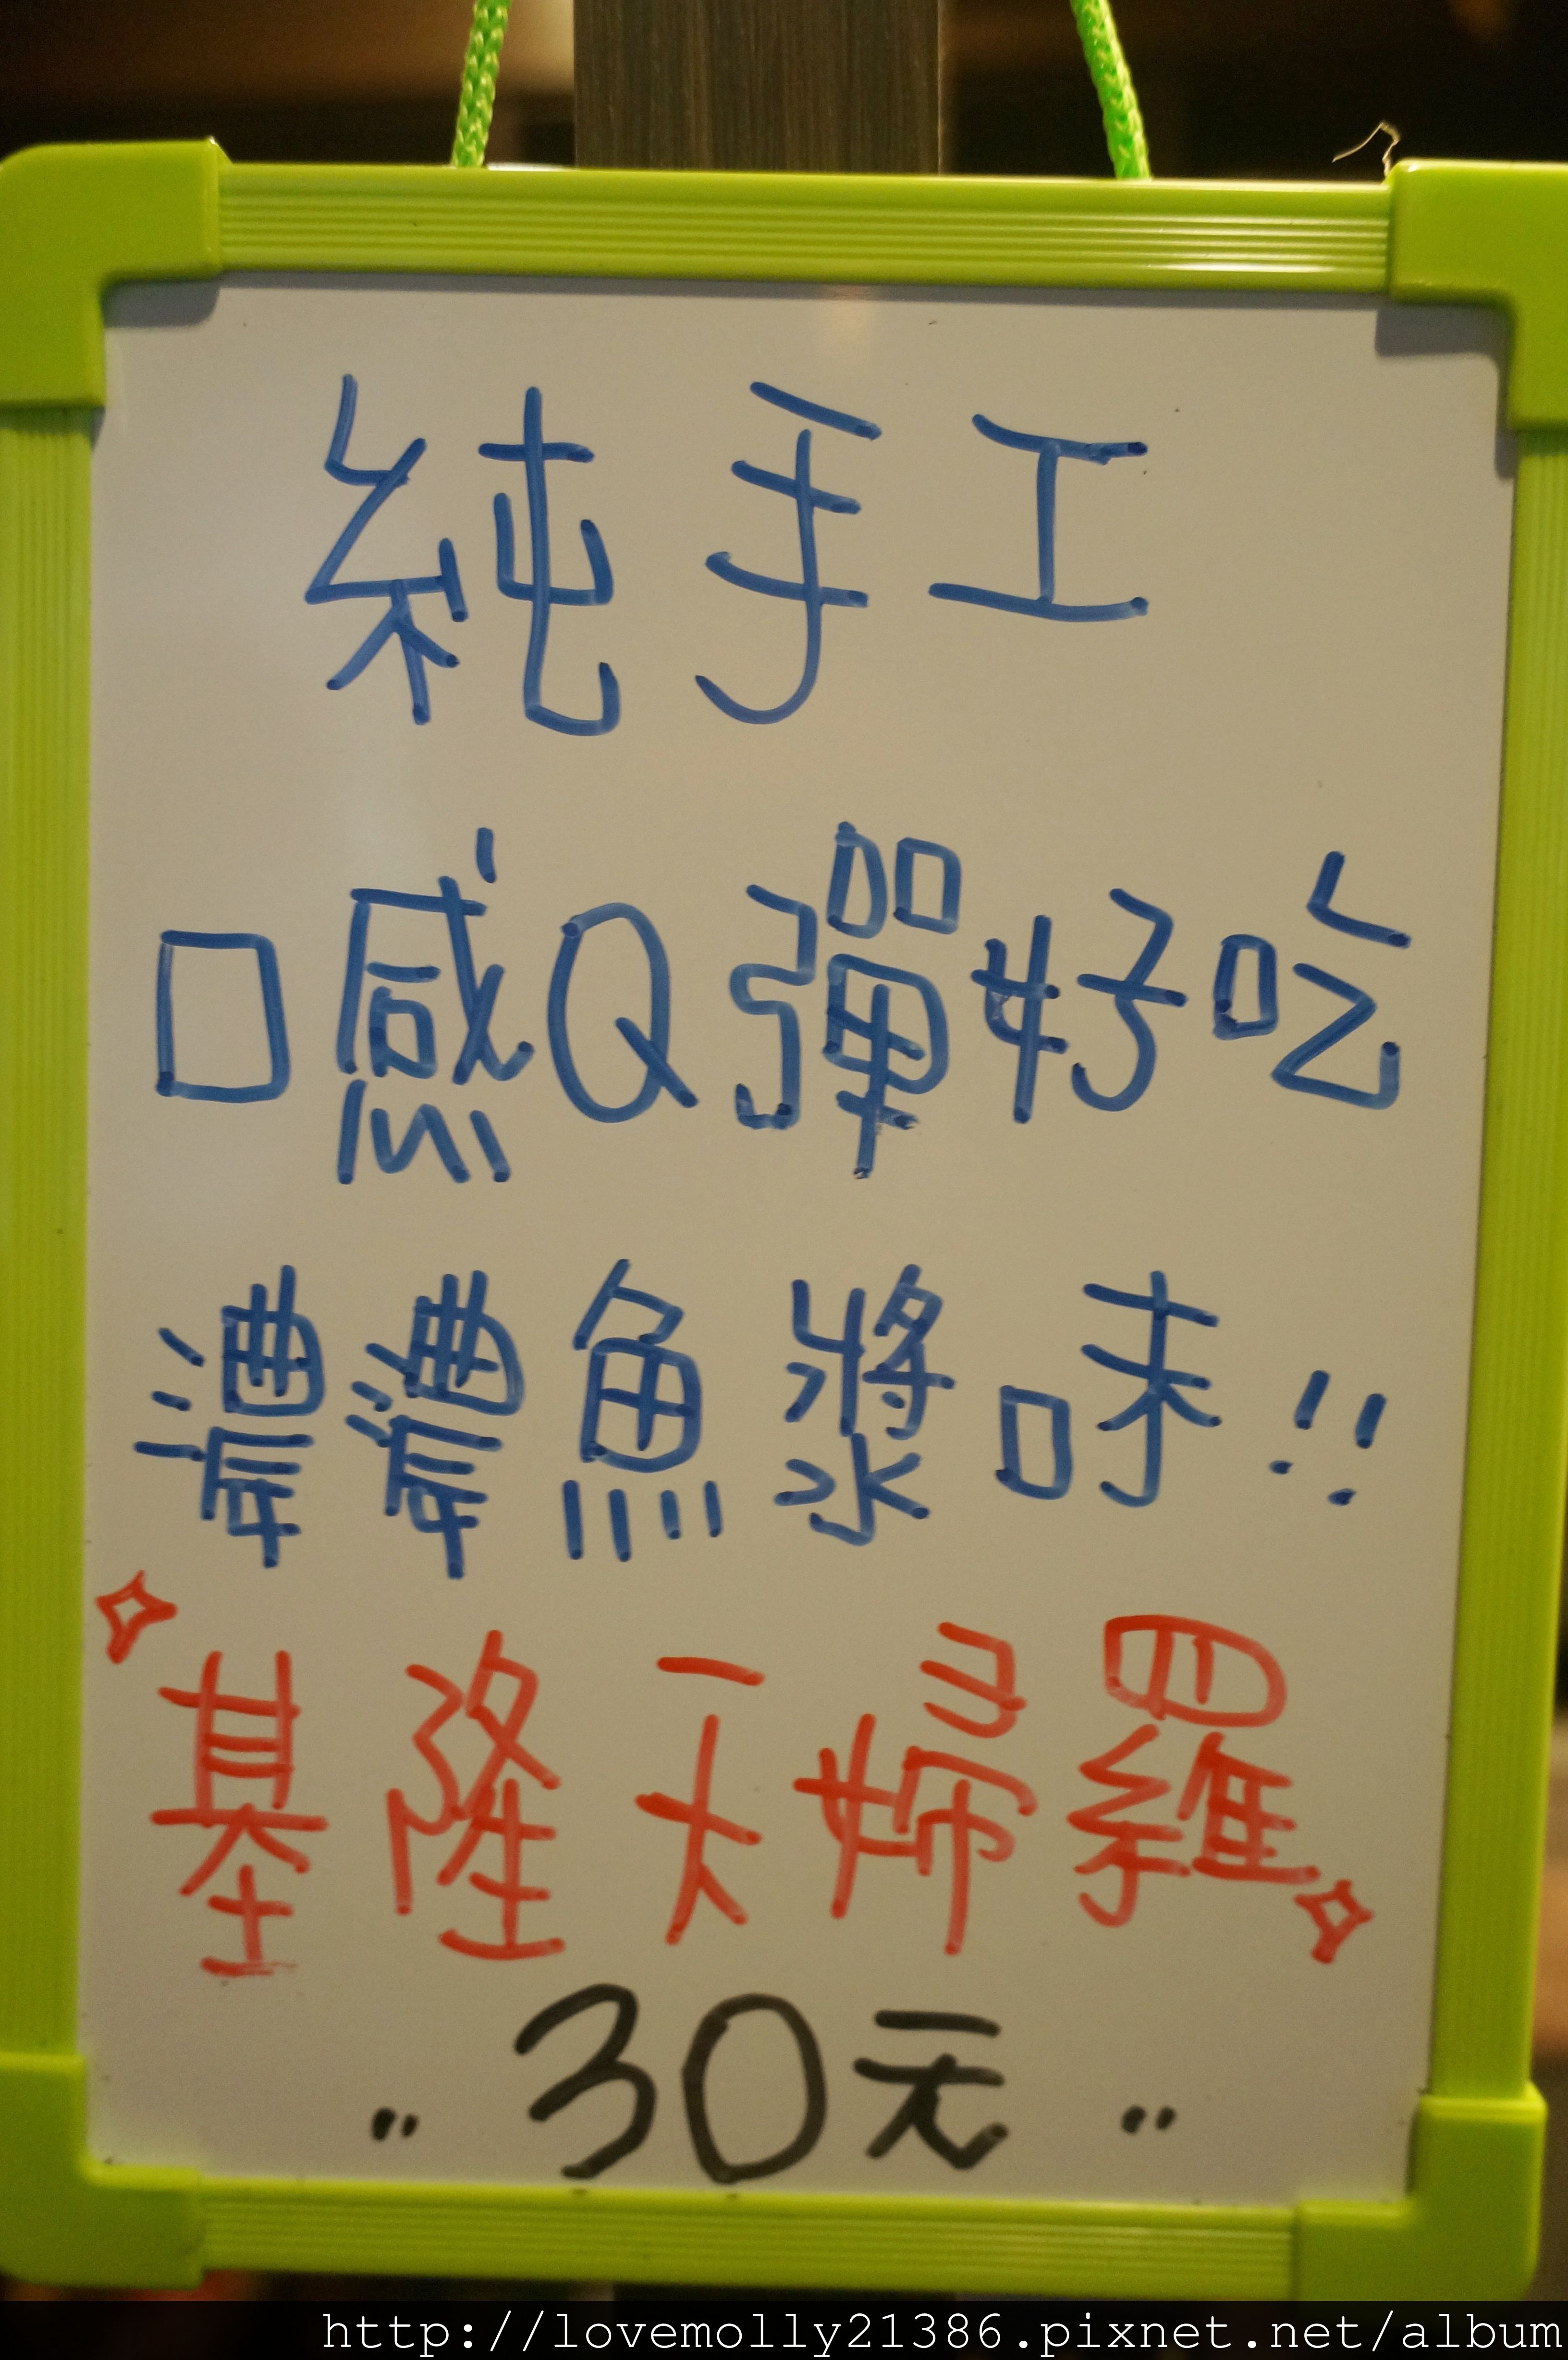 純手工
口感Q彈好吃
濃濃魚漿味!!
基隆天婦羅
"30元"
http://lovemolly21386.pixnet.net/album